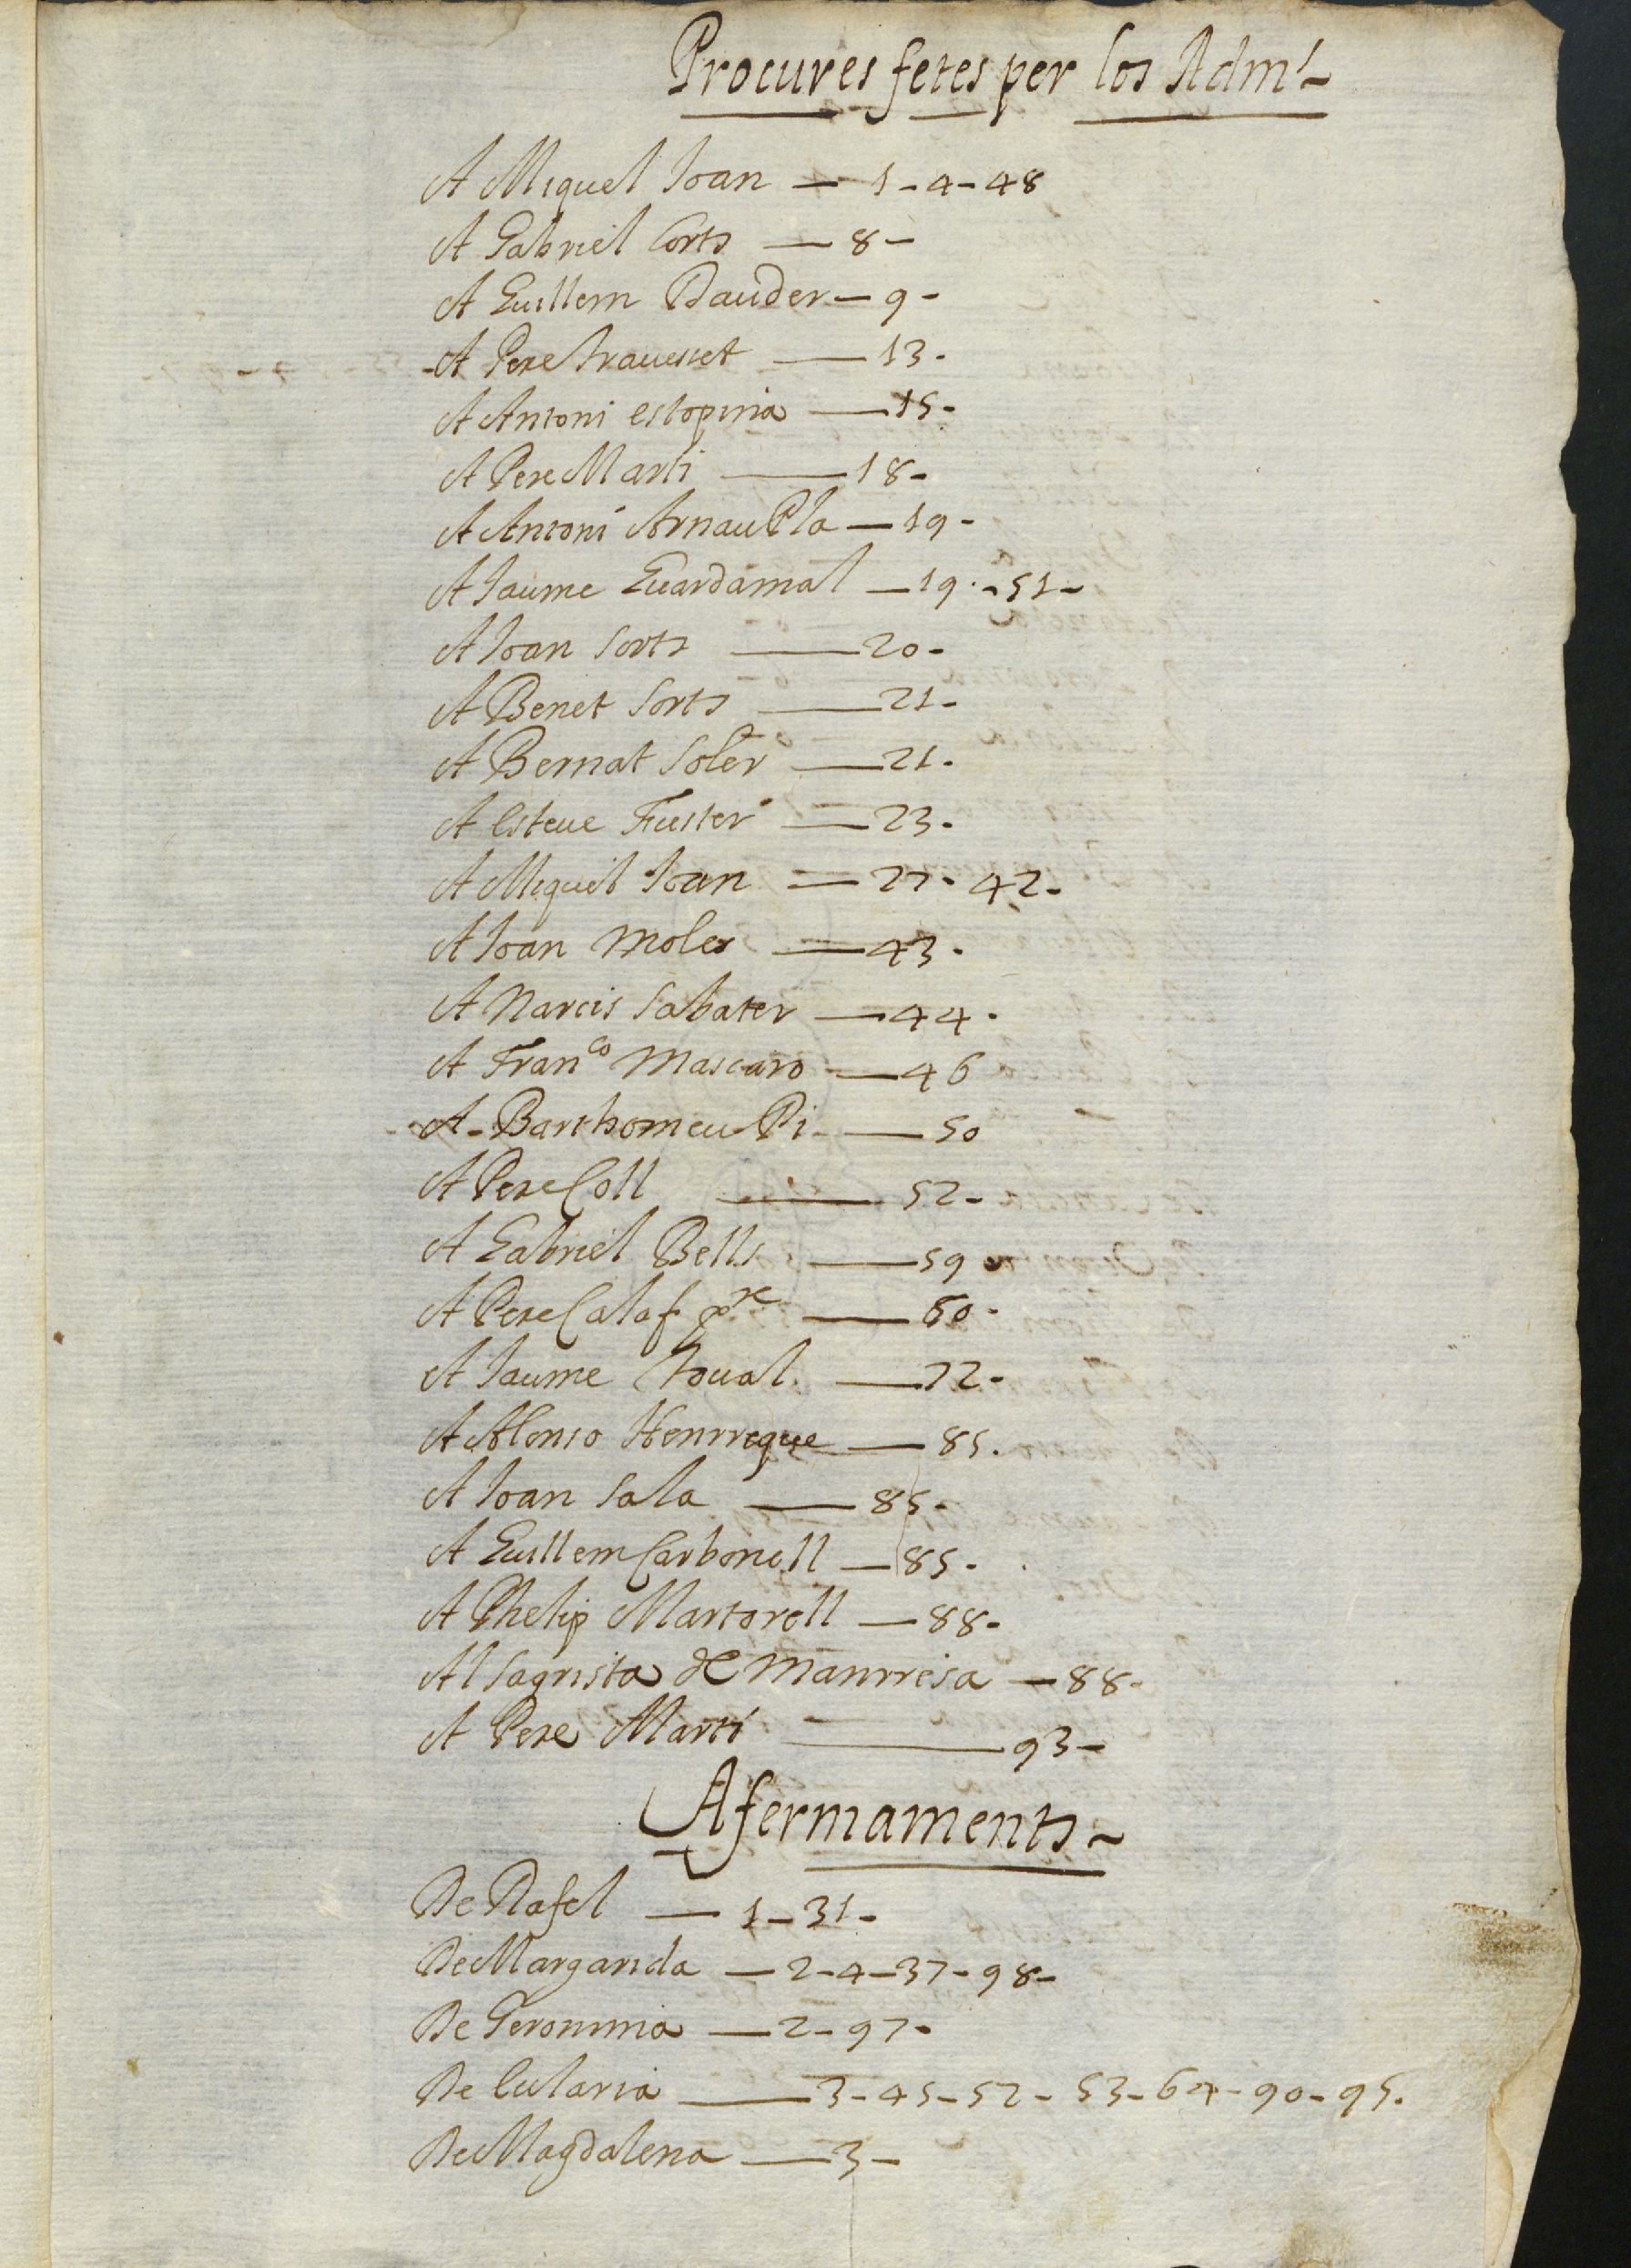 Procures fetes per los Adm.s
A Miquel Joan — 1 - 4 - 48
A Gabriel Corts — 8 -
A Guillem Dauder — 9 -
A Pere Trauesset — 13 -
A Antoni estopina — 15 -
A Pere Marti — 18 -
A Antoni Arnau Pla — 19 -
A Jaume Guardamal — 19 - 51 -
A Joan Sorts — 20 -
A Benet Sorts — 21 -
A Bernat Soler — 21 -
A Esteue Fuster — 23 -
A Miquel Joan — 27 - 42 -
A Joan Moles — 43 -
A Narcis Sabater — 44 -
A Fran.co Mascaro — 46
A Barthomeu Pi — 50
A Pere Coll — 52 -
A Gabriel Bells — 59
A Pere Calaf p.re — 60 -
A Jaume Noual — 72 -
A Alonso Henrrique — 85 .
A Joan Sala — 85 -
A Guillem Carbonell — 85 -
A Phelip Martorell — 88 -
Al Sagrista de Manrresa — 88 -
A Pere Marti — 93 -
Afermaments
De Rafel — 1 - 31 -
De Margarida — 2 - 4 - 37 - 98 -
De Geronima — 2 - 97 -
De Eularia — 3 - 45 - 52 - 53 - 64 - 90 - 95 .
De Magdalena — 3 -